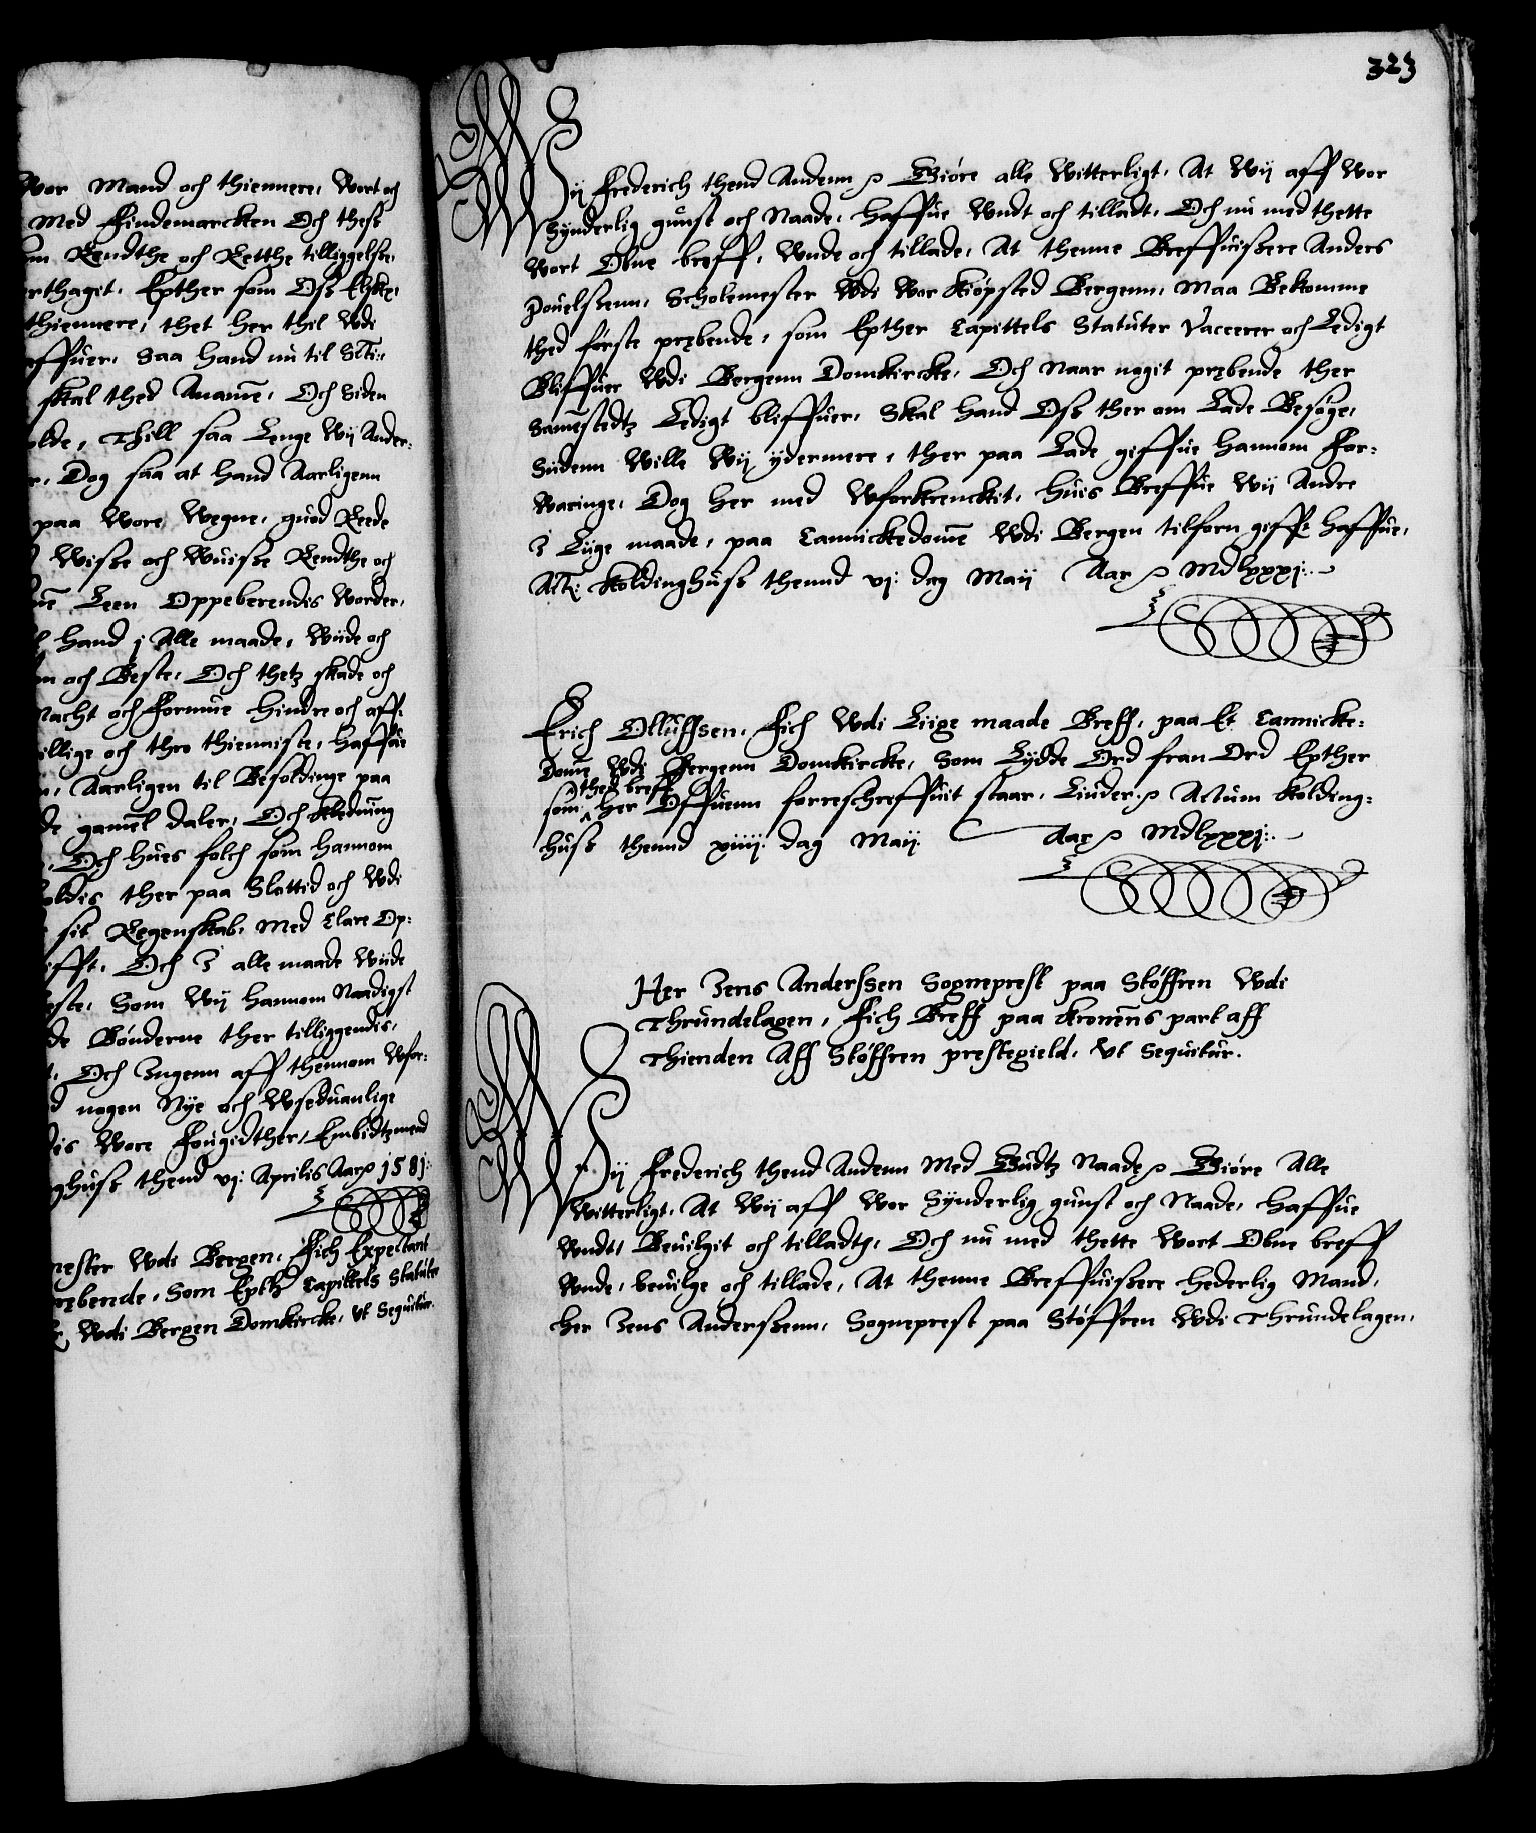 Wor Mand och thiennere, Wort och
Med Findemarcken Och thess
Rendthe och Retthe tilliggelsse,
Epther som Oss Elske,
thiennere, thet her thil Wdi
Saa hand nu til Stti:
skal thed Anamē, Och Siden
Thill saa Lenge Wij Ander:
Dog saa at hand Aarligenn
paa Wore Wegne, guod Reede
Wisse och Wuisse Rendthe och
Leen Oppeberendis Worder,
hand j Alle maade, Wiide och
och Beste, Och thetz skade och
Macht och Formue hindre och aff:
och thro thienniste, haffue
Aarligen til Besoldinge paa
gamēl daler, Och Kledning
Och hues folch som hannom
ther paa Slottid och Wdi
sit Regenskab, Med Clare Op:
Och I alle maade Wiide
Som Wij hannom Naadigst
Bønderne ther tilliggendis,
Och Ingenn aff thennom Wfor:
nogen Nye och Wseduanlige
Wore Fougidther, Embidtzmend
thend vj: Aprilis Aar 1581:
Wdi Bergen, Fich Expectant
Som Epth Capittels Statuter
Wdi Bergen Domkircke, Vt Sequitur.
323
Wij Frederich thend Andenn Giøre alle Witterligt, At Wij aff Wor
Synderlig gunst och Naade, haffue Wndt och tilladt, Och nu med thette
Wort Obne breff, Wnde och tillade, At thenne Breffuissere Anders
Pouelssenn, Scholemester Wdi Wor Kiøpsted Bergenn, Maa Bekomme
thed første præbende, som Epther Capittels Statuter Vaccerer och Ledigt
Bliffuer Wdi Bergenn Domkircke, Och Naar nogit præbende ther
Samēstedtz Ledigt bliffuer, Skal hand Oss ther om Lade Besøge,
Sidenn Wille Wij ydermere, ther paa Lade giffue hannom For:
Waringe, Dog her med Wforkrenckit, huis Breffue Wij Andre
I Liige maade, paa Cannickedomē Wdi Bergen tilforn giff: haffue,
Actt: Koldinghuss thennd vj: dag Maij Aar Mdlxxxj:
Erich Olluffsen, Fich Wdi Liige maade Breff, paa Et Cannicke:
Domē Wdi Bergenn Domkircke, Som Lydde Ord fran Ord Epther
som thed breff her Offuenn forreschreffuit staar, Liuder Actum Kolding:
huss thennd xiiij: dag Maij. Aar Mdlxxxj:
Her Jens Anderssen Sogneprest paa Støffren Wdi
Thrundelagen, Fich Breff paa Kronēns part aff
Thienden Aff Støffren prestegield, Vt Sequitur.
Wij Frederich thend Andenn Med Gudtz Naade Giøre Alle
Witterligt, At Wij aff Wor Synderlig gunst och Naade, haffue
Wndt, Beuilgit och tilladt, Och nu med thette Wort Obne breff
Wnde, beuilge och tillade, At thenne Breffuissere hederlig Mand,
her Jens Anderssenn, Sogneprest paa Støffren Wdi Thrundelagen,